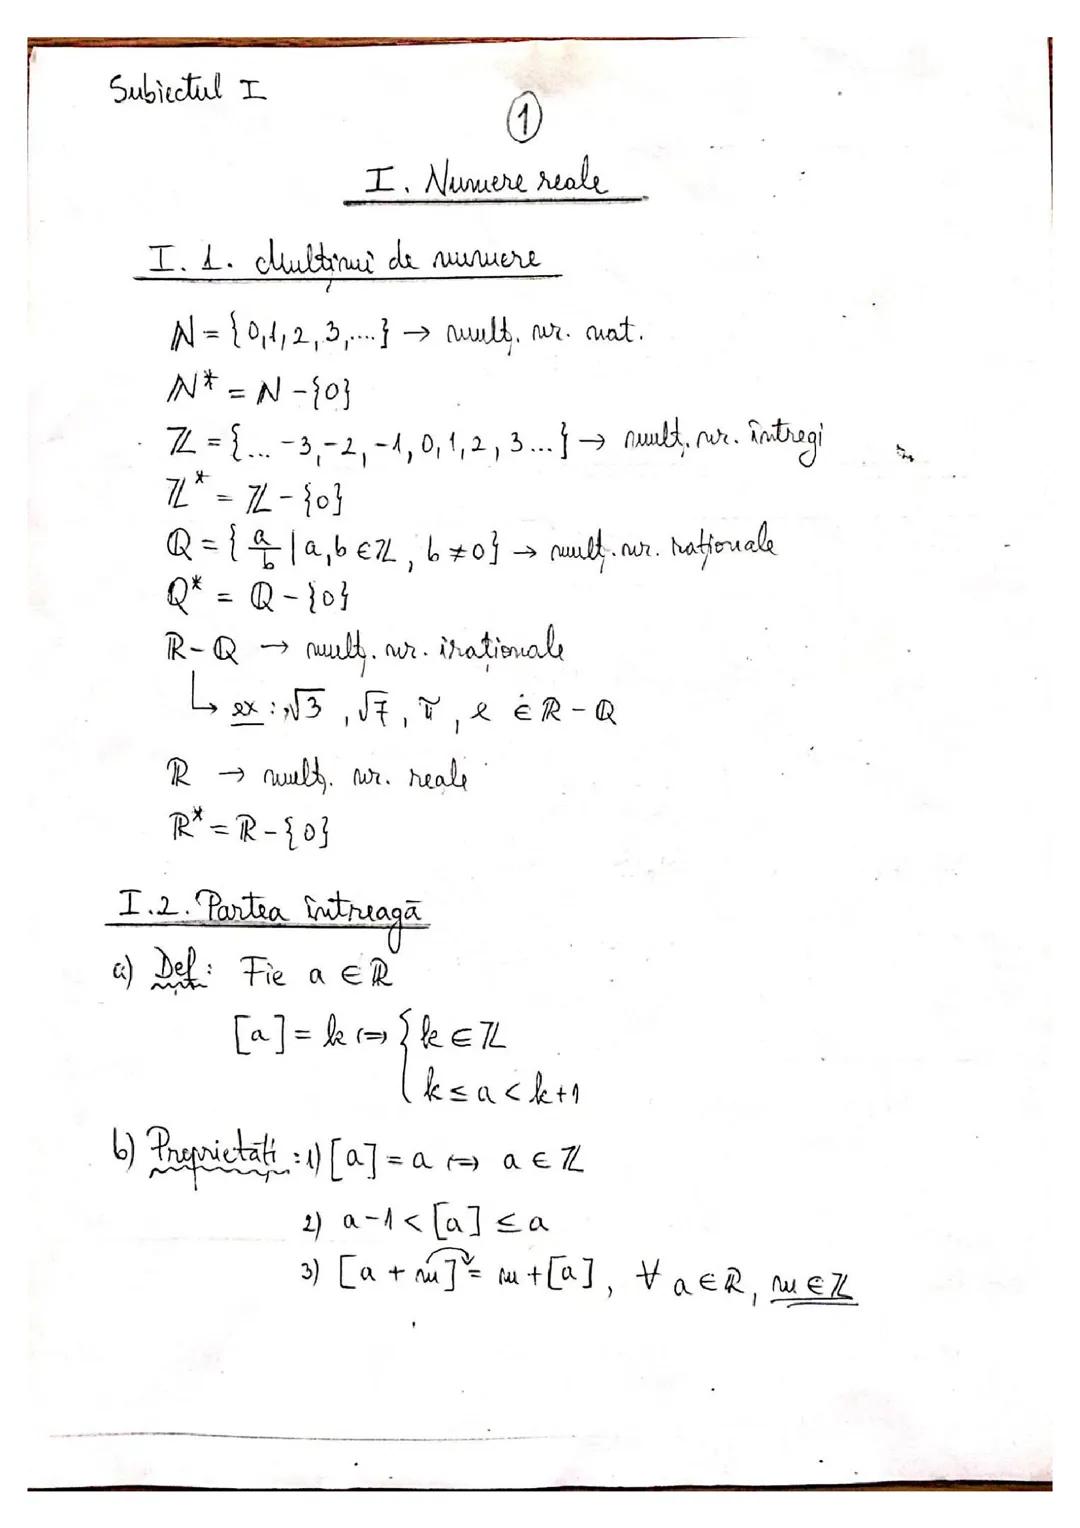 Subiectul I
1
I. Numere reale
I. 1. Mulțimi de numere
ℕ = {0,1,2,3,...} → mulț. nr. nat.
ℕ* = ℕ - {0}
ℤ = {... -3,-2,-1,0,1,2,3...} → mulț. nr. întregi
ℤ* = ℤ - {0}
ℚ = { a/b | a,b ∈ ℤ, b ≠ 0} → mulț. nr. raționale
ℚ* = ℚ - {0}
ℝ - ℚ → mulț. nr. iraționale
↳ ex: √3, √7, π, e ∈ ℝ - ℚ
ℝ → mulț. nr. reale
ℝ* = ℝ - {0}
I.2. Partea întreagă
a) Def: Fie a ∈ ℝ
[a] = k ⇔ { k ∈ ℤ
k ≤ a < k+1
b) Proprietăți: 1) [a] = a ⇔ a ∈ ℤ
2) a-1 < [a] ≤ a
3) [a + m] = m + [a], ∀ a ∈ ℝ, m ∈ ℤ